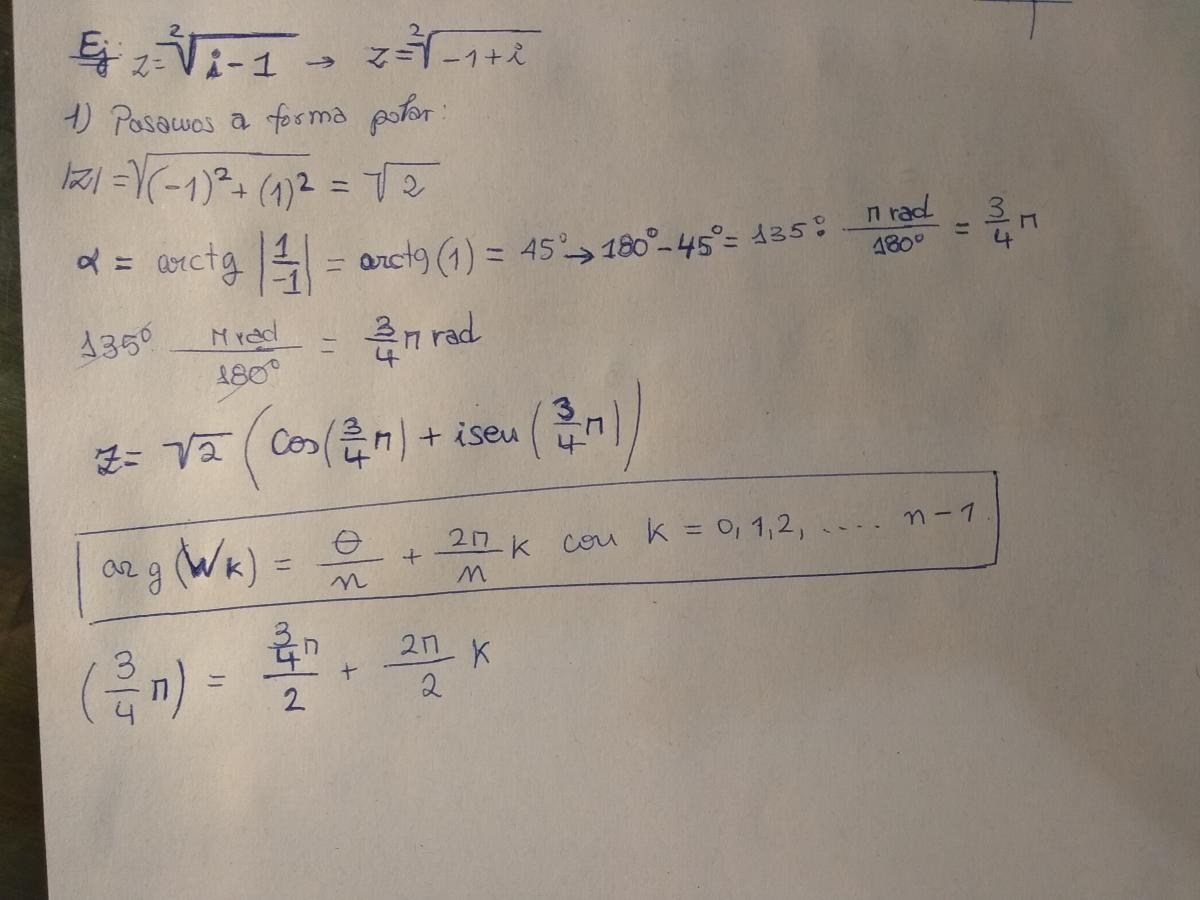 Ej: z=²√i-1 → z=²√-1+i
1) Pasamos a forma polar:
|z|=√(-1)²+(1)² = √2
α = arctg |1/-1| = arctg(1) = 45° → 180°-45° = 135° · π rad/180° = 3/4 π
135° π rad/180° = 3/4 π rad
z= √2 (cos(3/4 π) + i sen (3/4 π))
arg(Wk) = θ/n + 2π/n k con k = 0,1,2, ..... n-1
(3/4 π) = 3/4 π/2 + 2π/2 k